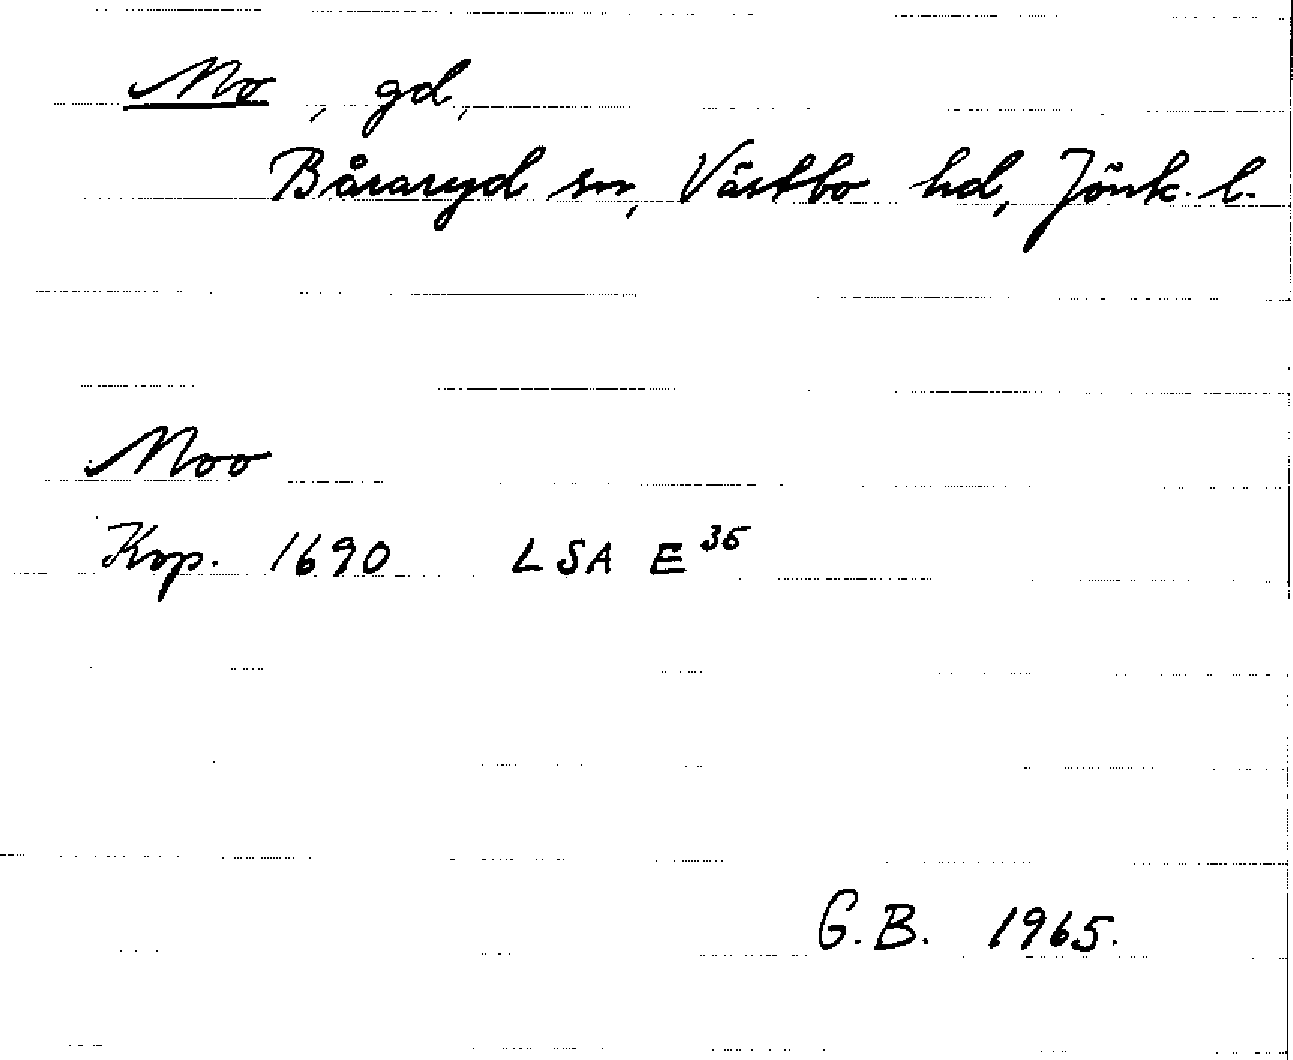 Mo, gd,
Båraryd sn, Västbo hd, Jönk. l.
Moo
Kop. 1690 LSA E³⁵
G.B. 1965.